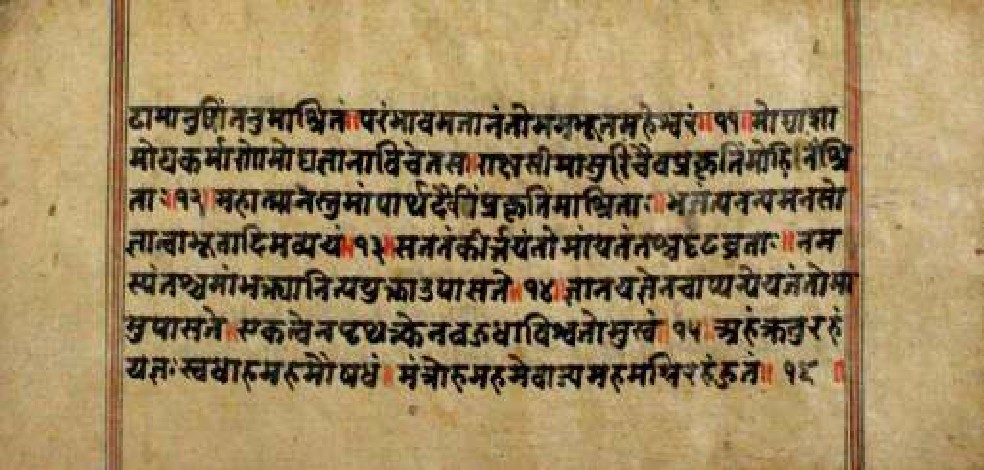 ढामानुषींतनुमाश्रितं॥परंभावमजानंतोममभूतमहेश्वरं॥११॥मोघाशा
मोघकर्माणोमोघज्ञानाविचेतस॥राक्षसीमासुरींचैवप्रकृतिंमोहिनींश्रि
ताः॥१२॥महात्मानस्तुमांपार्थदैवींप्रकृतिमाश्रिताः॥भजंत्यनन्यमनसो
ज्ञात्वाभूतादिमव्ययं॥१३॥सततंकीर्त्तयंतोमांयतंतश्चदृढव्रताः॥नम
स्यंतश्चमांभक्त्यानित्ययुक्ताउपासते॥१४॥ज्ञानयज्ञेनचाप्यन्येयजंतोमा
मुपासते॥एकत्वेनपृथक्त्केनबहुधाविश्वतोमुखं॥१५॥अहंक्रतुरहं
यज्ञःस्वधाहमहमौषधं॥मंत्रोहमहमेवाज्यमहमग्निरहंहुतं॥१६॥